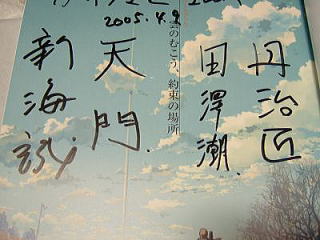 2005.4.9
雲のむこう、約束の場所
丹治匠
田澤潮.
天門.
新海誠